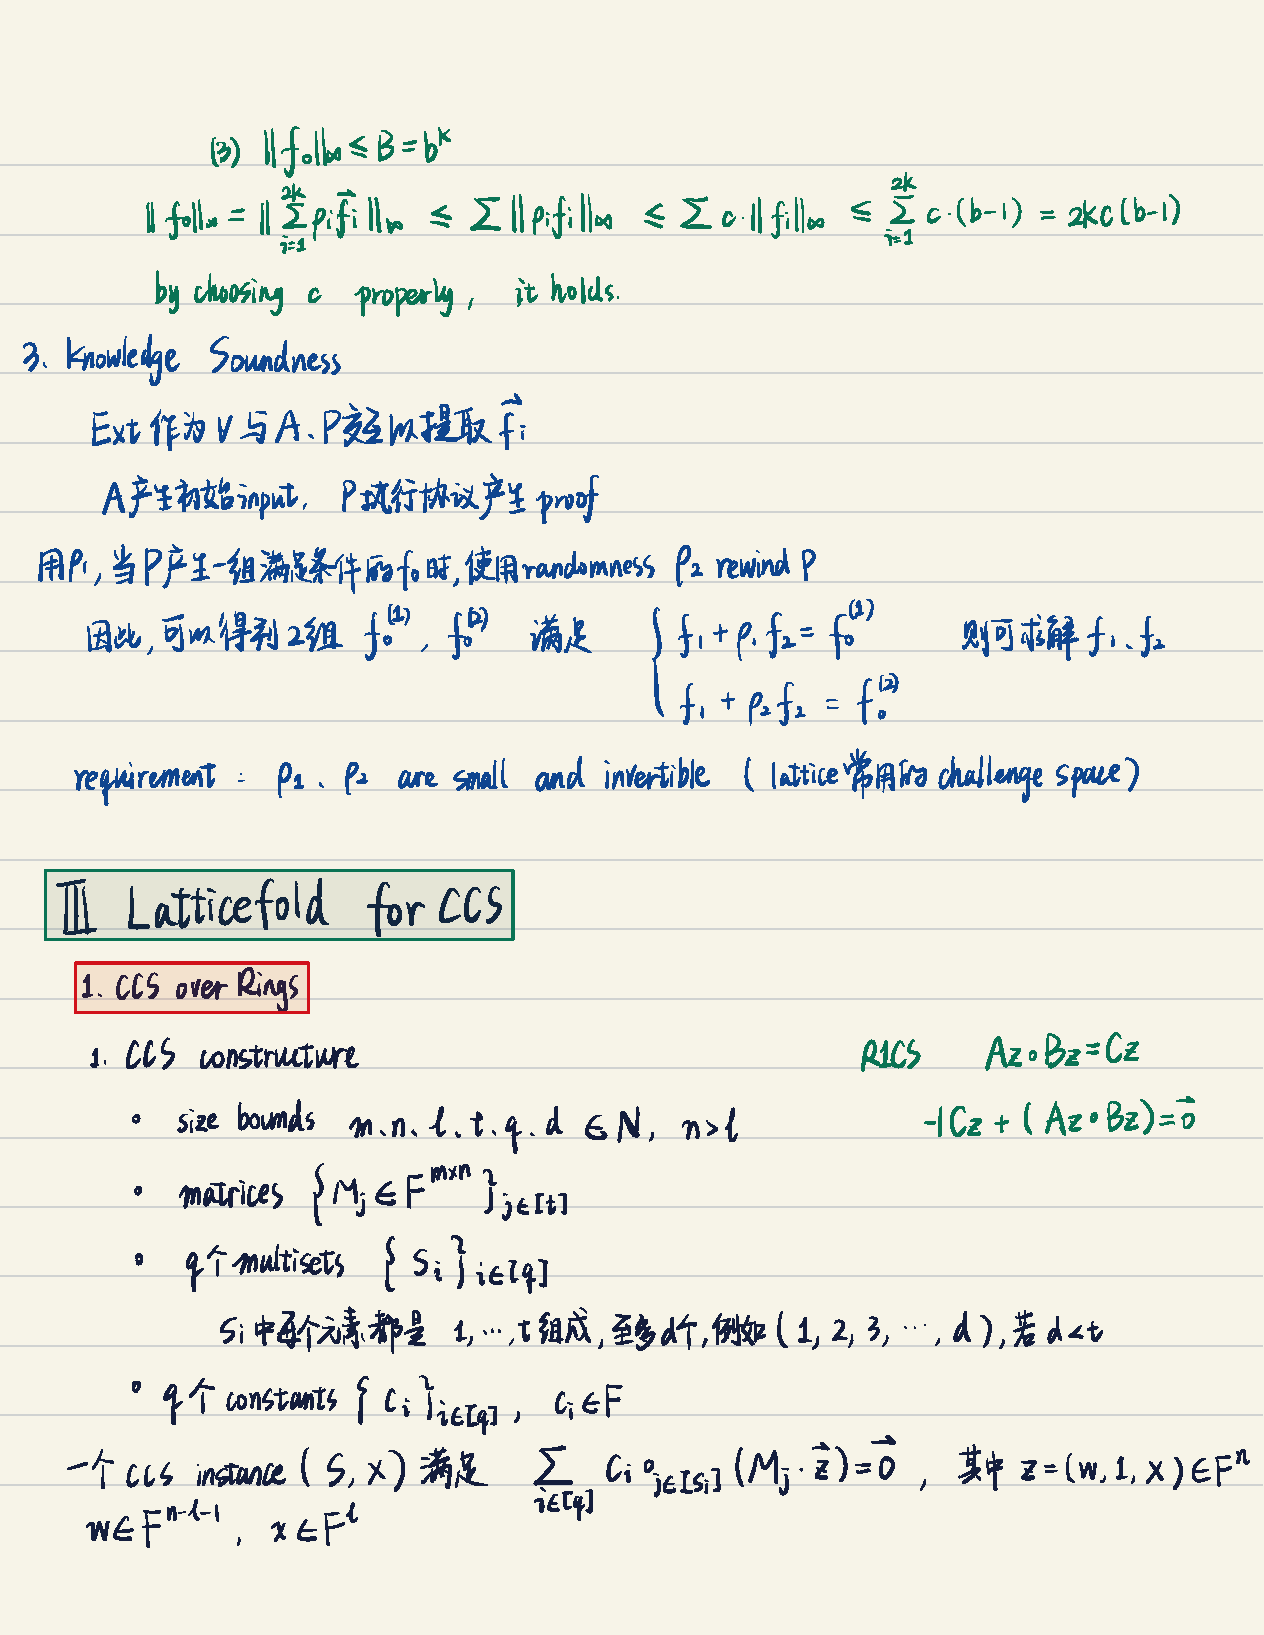 (3) ‖f₀‖∞ ≤ B = b^k
‖f₀‖∞ = ‖∑_{i=1}^{2k} ρᵢf⃗ᵢ‖∞ ≤ ∑‖ρᵢfᵢ‖∞ ≤ ∑ c·‖fᵢ‖∞ ≤ ∑_{i=1}^{2k} c·(b-1) = 2kc(b-1)
by choosing c properly, it holds.
3. Knowledge Soundness
Ext 作为 V 与 A、P交互以提取 f⃗ᵢ
A产生初始input, P执行协议产生 proof
用ρ₁, 当P产生一组满足条件的f₀时, 使用randomness ρ₂ rewind P
因此, 可以得到2组 f₀^{(1)}, f₀^{(2)} 满足 { f₁ + ρ₁f₂ = f₀^{(1)} 则可求解 f₁、f₂
f₁ + ρ₂f₂ = f₀^{(2)}
requirement: ρ₁、ρ₂ are small and invertible (lattice常用的 challenge space)
III Latticefold for CCS
1. CCS over Rings
1. CCS constructure R1CS Az∘Bz=Cz
• size bounds m.n.l.t.q.d ∈ N, n>l -1Cz + (Az∘Bz)=0⃗
• matrices {Mⱼ ∈ F^{m×n}}_{j∈[t]}
• q个multisets {Sᵢ}_{i∈[q]}
Sᵢ中每个元素都是 1,…,t组成, 至多d个, 例如(1, 2, 3, …, d), 若 d<t
• q个 constants {Cᵢ}_{i∈[q]}, cᵢ∈F
一个 CCS instance (S, x) 满足 ∑_{i∈[q]} Cᵢ ∘_{j∈[Sᵢ]} (Mⱼ·z⃗)=0⃗, 其中 z=(w,1,x)∈F^n
w∈F^{n-l-1}, x∈F^l